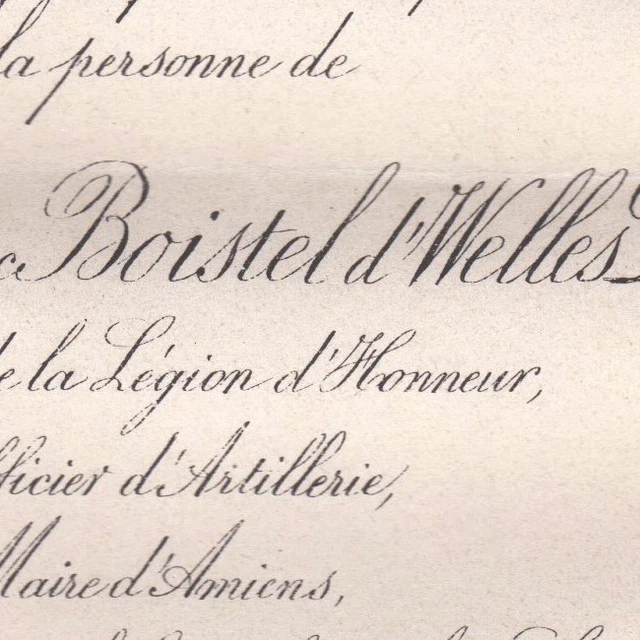 la personne de
Boistel d'Welles
de la Légion d'Honneur,
fficier d'Artillerie,
Maire d'Amiens,